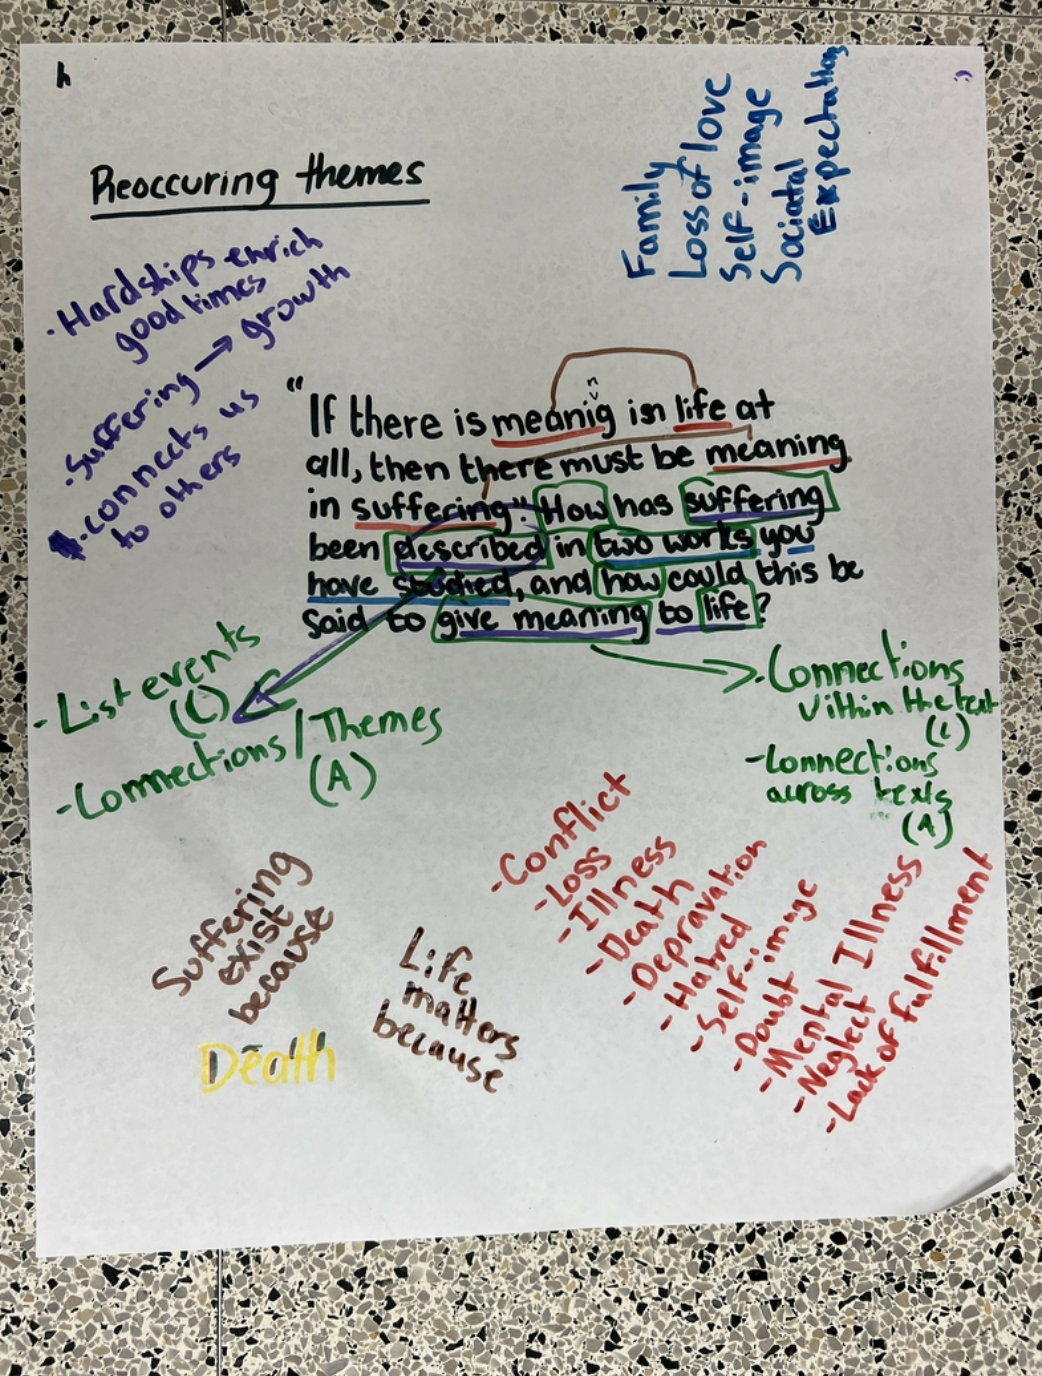 h
:)
Reoccuring themes
Family
Loss of love
Self-image
Sociatal
Expectations
· Hardships enrich
good times
· Suffering → growth
· connects us
to others
"If there is meanig in life at
n
all, then there must be meaning
in suffering". How has suffering
been described in two works you
have studied, and how could this be
said to give meaning to life?
- List events
(C)
- Connections / Themes
(A)
- Connections
within the text
(C)
- Connections
across texts
(A)
- Conflict
- Loss
- Illness
- Death
- Depravation
- Hatred
- Self-image
- Doubt
- Mental Illness
- Neglect
- Lack of fulfillment
Suffering
exist
because
Death
Life
matters
because